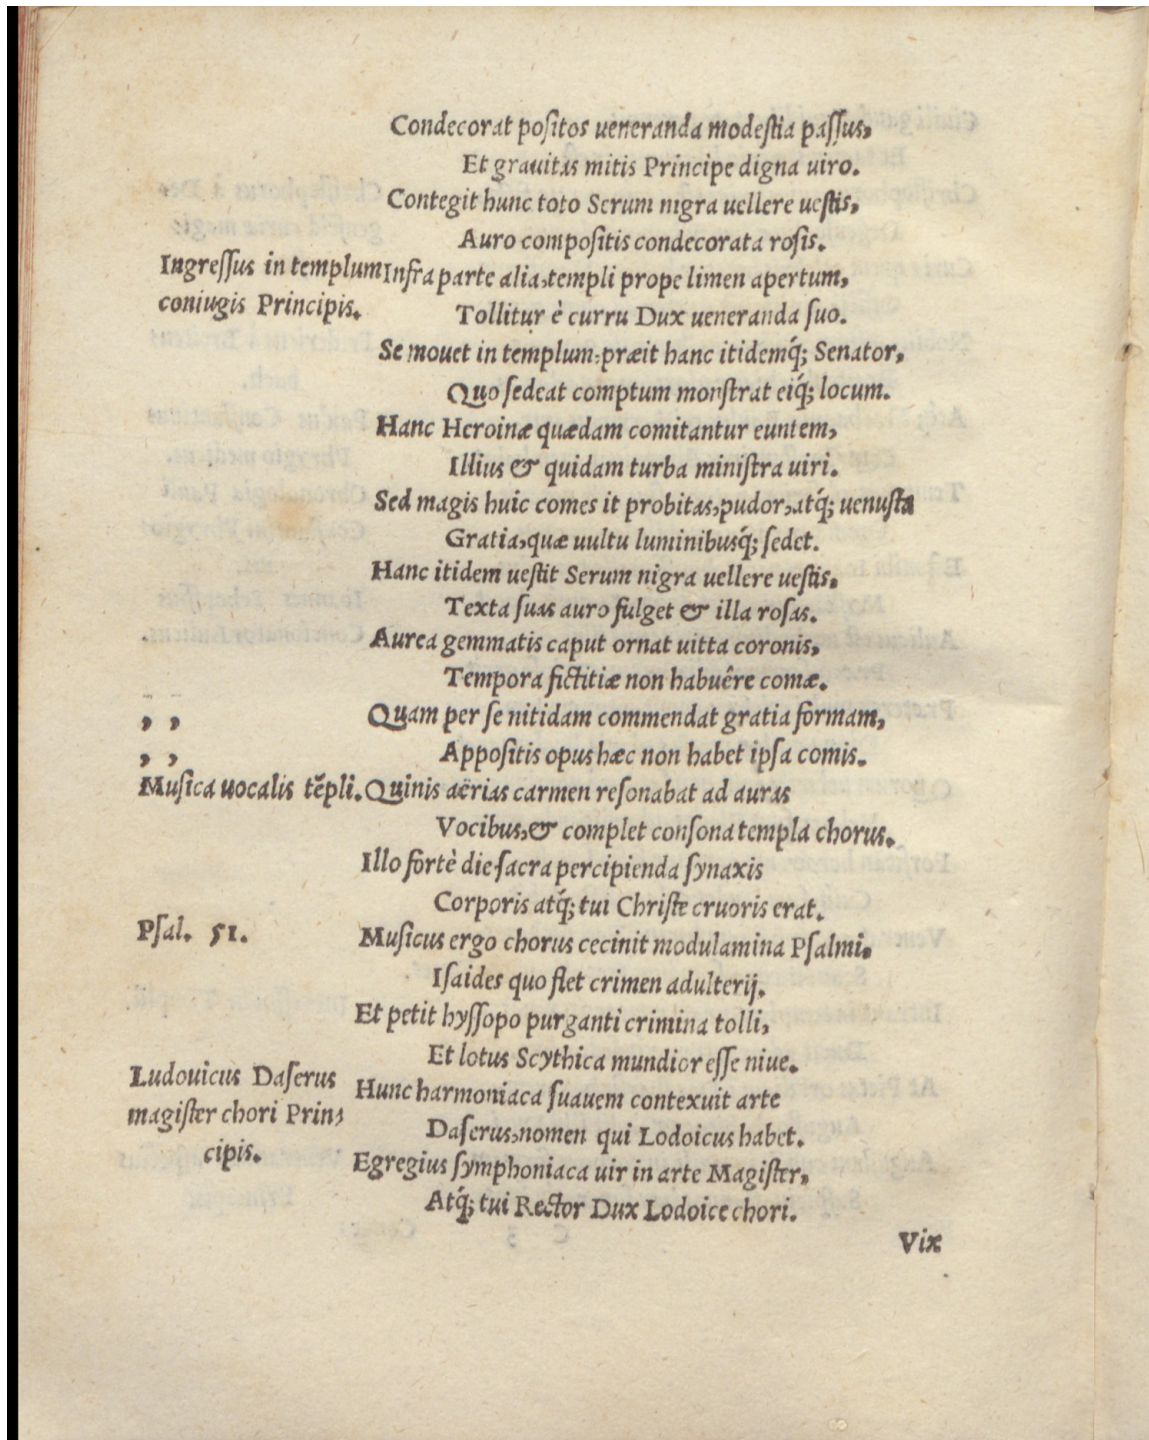 Condecorat poſitos ueneranda modeſtia paſſus,
Et grauitas mitis Principe digna uiro.
Contegit hunc toto Serum nigra uellere ueſtis,
Auro compoſitis condecorata roſis.
Ingreſſus in templum
coniugis Principis.
Infra parte alia, templi prope limen apertum,
Tollitur è curru Dux ueneranda ſuo.
Se mouet in templum: præit hanc itidemq́; Senator,
Quo ſedeat comptum monſtrat eiq́; locum.
Hanc Heroinæ quædam comitantur euntem,
Illius & quidam turba miniſtra uiri.
Sed magis huic comes it probitas, pudor, atq́; uenuſta
Gratia, quæ uultu luminibusq́; ſedet.
Hanc itidem ueſtit Serum nigra uellere ueſtis,
Texta ſuas auro fulget & illa roſas.
Aurea gemmatis caput ornat uitta coronis,
Tempora fictitiæ non habuêre comæ.
, , Quam per ſe nitidam commendat gratia formam,
, , Appoſitis opus hæc non habet ipſa comis.
Muſica uocalis tẽpli. Quinis aërias carmen reſonabat ad auras
Vocibus, & complet conſona templa chorus.
Illo fortè die ſacra percipienda ſynaxis
Corporis atq́; tui Chriſte cruoris erat.
Pſal. 51. Muſicus ergo chorus cecinit modulamina Pſalmi,
Iſaides quo flet crimen adulterij.
Et petit hyſſopo purganti crimina tolli,
Et lotus Scythica mundior eſſe niue.
Ludouicus Daſerus
magiſter chori Prin,
cipis.
Hunc harmoniaca ſuauem contexuit arte
Daſerus, nomen qui Lodoicus habet.
Egregius ſymphoniaca uir in arte Magiſter,
Atq́; tui Rector Dux Lodoice chori.
Vix